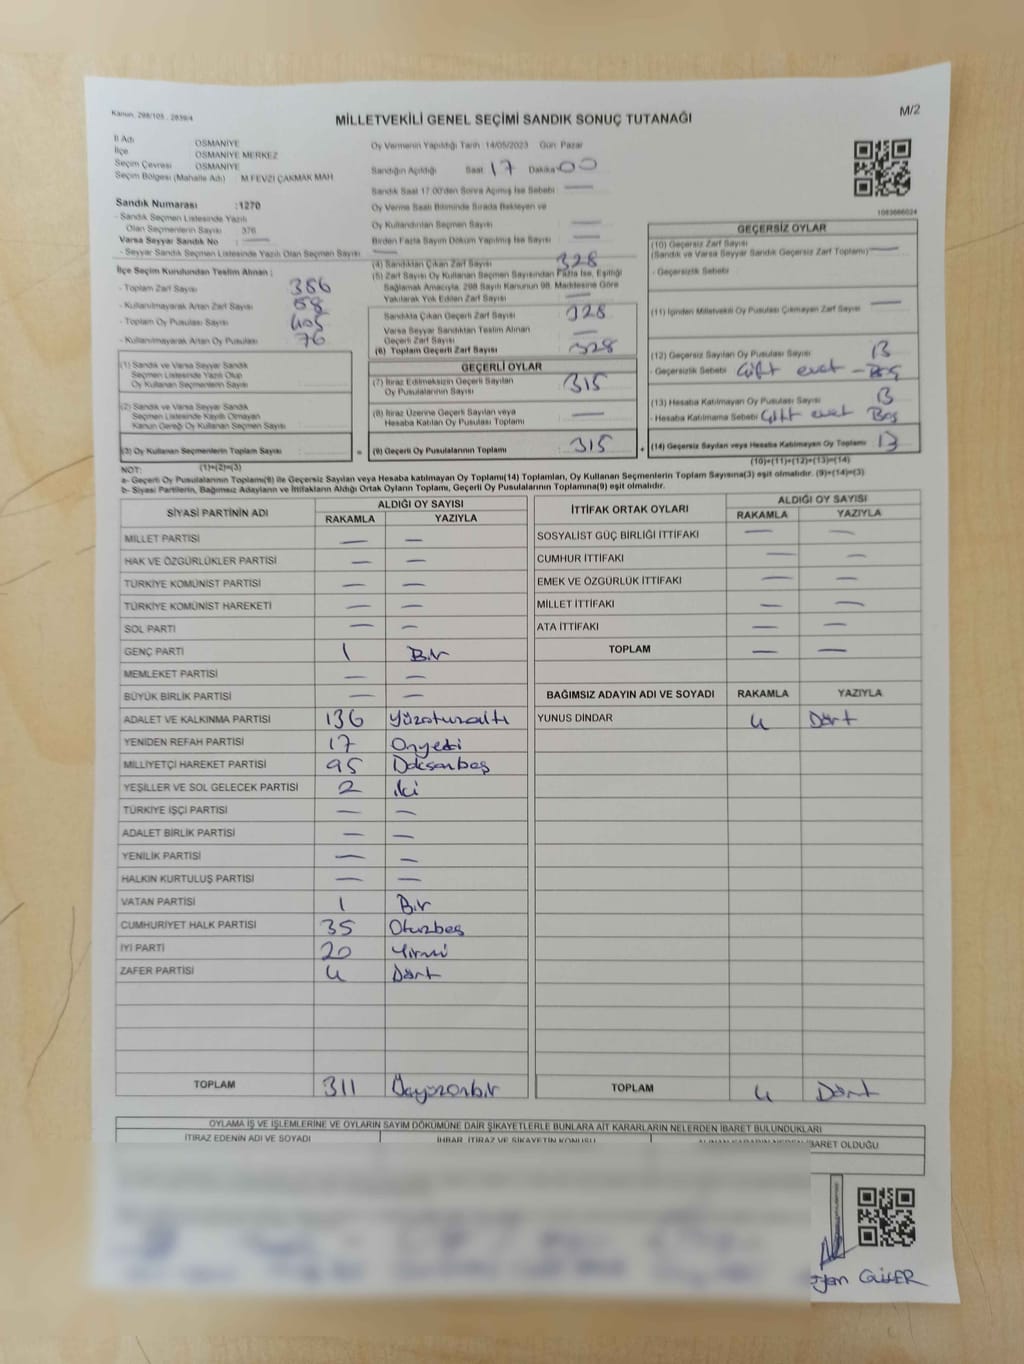 Kanun: 298/105 , 2839/4
M/2
MİLLETVEKİLİ GENEL SEÇİMİ SANDIK SONUÇ TUTANAĞI
İl Adı OSMANİYE
İlçe OSMANİYE MERKEZ
Seçim Çevresi OSMANİYE
Seçim Bölgesi (Mahalle Adı) M.FEVZİ ÇAKMAK MAH
Sandık Numarası :1270
- Sandık Seçmen Listesinde Yazılı
Olan Seçmenlerin Sayısı 376
Varsa Seyyar Sandık No :
- Seyyar Sandık Seçmen Listesinde Yazılı Olan Seçmen Sayısı
İlçe Seçim Kurulundan Teslim Alınan ;
- Toplam Zarf Sayısı 386
- Kullanılmayarak Artan Zarf Sayısı 58
- Toplam Oy Pusulası Sayısı 405
- Kullanılmayarak Artan Oy Pusulası 76
(1) Sandık ve Varsa Seyyar Sandık
Seçmen Listesinde Yazılı Olup
Oy Kullanan Seçmenlerin Sayısı
(2) Sandık ve Varsa Seyyar Sandık
Seçmen Listesinde Kayıtlı Olmayan
Kanun Gereği Oy Kullanan Seçmen Sayısı
(3) Oy Kullanan Seçmenlerin Toplam Sayısı :
(1)+(2)=(3)
Oy Vermenin Yapıldığı Tarih 14/05/2023 Gün: Pazar
Sandığın Açıldığı Saat 17 Dakika 00
Sandık Saat 17:00'den Sonra Açılmış İse Sebebi :
Oy Verme Saati Bitiminde Sırada Bekleyen ve
Oy Kullandırılan Seçmen Sayısı :
Birden Fazla Sayım Döküm Yapılmış İse Sayısı
(4) Sandıktan Çıkan Zarf Sayısı 328
(5) Zarf Sayısı Oy Kullanan Seçmen Sayısından Fazla İse, Eşitliği
Sağlamak Amacıyla, 298 Sayılı Kanunun 98. Maddesine Göre
Yakılarak Yok Edilen Zarf Sayısı
Sandıkta Çıkan Geçerli Zarf Sayısı 328
Varsa Seyyar Sandıktan Teslim Alınan
Geçerli Zarf Sayısı
(6) Toplam Geçerli Zarf Sayısı 328
GEÇERLİ OYLAR
(7) İtiraz Edilmeksizin Geçerli Sayılan
Oy Pusulalarının Sayısı 315
(8) İtiraz Üzerine Geçerli Sayılan veya
Hesaba Katılan Oy Pusulası Toplamı
= (9) Geçerli Oy Pusulalarının Toplamı 315
1083666024
GEÇERSİZ OYLAR
(10) Geçersiz Zarf Sayısı
(Sandık ve Varsa Seyyar Sandık Geçersiz Zarf Toplamı)
- Geçersizlik Sebebi
(11) İçinden Milletvekili Oy Pusulası Çıkmayan Zarf Sayısı
(12) Geçersiz Sayılan Oy Pusulası Sayısı 13
- Geçersizlik Sebebi Çift evet - Boş
(13) Hesaba Katılmayan Oy Pusulası Sayısı 13
- Hesaba Katılmama Sebebi Çift evet Boş
+ (14) Geçersiz Sayılan veya Hesaba Katılmayan Oy Toplamı 13
(10)+(11)+(12)+(13)=(14)
NOT:
a- Geçerli Oy Pusulalarının Toplamı(9) ile Geçersiz Sayılan veya Hesaba katılmayan Oy Toplamı(14) Toplamları, Oy Kullanan Seçmenlerin Toplam Sayısına(3) eşit olmalıdır. (9)+(14)=(3)
b- Siyasi Partilerin, Bağımsız Adayların ve İttifakların Aldığı Ortak Oyların Toplamı, Geçerli Oy Pusulalarının Toplamına(9) eşit olmalıdır.
SİYASİ PARTİNİN ADI ALDIĞI OY SAYISI
RAKAMLA YAZIYLA
MİLLET PARTİSİ — —
HAK VE ÖZGÜRLÜKLER PARTİSİ — —
TÜRKİYE KOMÜNİST PARTİSİ — —
TÜRKİYE KOMÜNİST HAREKETİ — —
SOL PARTİ — —
GENÇ PARTİ 1 Bir
MEMLEKET PARTİSİ — —
BÜYÜK BİRLİK PARTİSİ — —
ADALET VE KALKINMA PARTİSİ 136 Yüzotuzaltı
YENİDEN REFAH PARTİSİ 17 Onyedi
MİLLİYETÇİ HAREKET PARTİSİ 95 Doksanbeş
YEŞİLLER VE SOL GELECEK PARTİSİ 2 iki
TÜRKİYE İŞÇİ PARTİSİ — —
ADALET BİRLİK PARTİSİ — —
YENİLİK PARTİSİ — —
HALKIN KURTULUŞ PARTİSİ — —
VATAN PARTİSİ 1 Bir
CUMHURİYET HALK PARTİSİ 35 Otuzbeş
İYİ PARTİ 20 Yirmi
ZAFER PARTİSİ 4 Dört
TOPLAM 311 Üçyüzonbir
İTTİFAK ORTAK OYLARI ALDIĞI OY SAYISI
RAKAMLA YAZIYLA
SOSYALİST GÜÇ BİRLİĞİ İTTİFAKI — —
CUMHUR İTTİFAKI — —
EMEK VE ÖZGÜRLÜK İTTİFAKI — —
MİLLET İTTİFAKI — —
ATA İTTİFAKI — —
TOPLAM — —
BAĞIMSIZ ADAYIN ADI VE SOYADI RAKAMLA YAZIYLA
YUNUS DİNDAR 4 Dört
TOPLAM 4 Dört
OYLAMA İŞ VE İŞLEMLERİNE VE OYLARIN SAYIM DÖKÜMÜNE DAİR ŞİKAYETLERLE BUNLARA AİT KARARLARIN NELERDEN İBARET BULUNDUKLARI
İTİRAZ EDENİN ADI VE SOYADI İHBAR, İTİRAZ VE ŞİKAYETİN KONUSU İBARET OLDUĞU
GÜLER